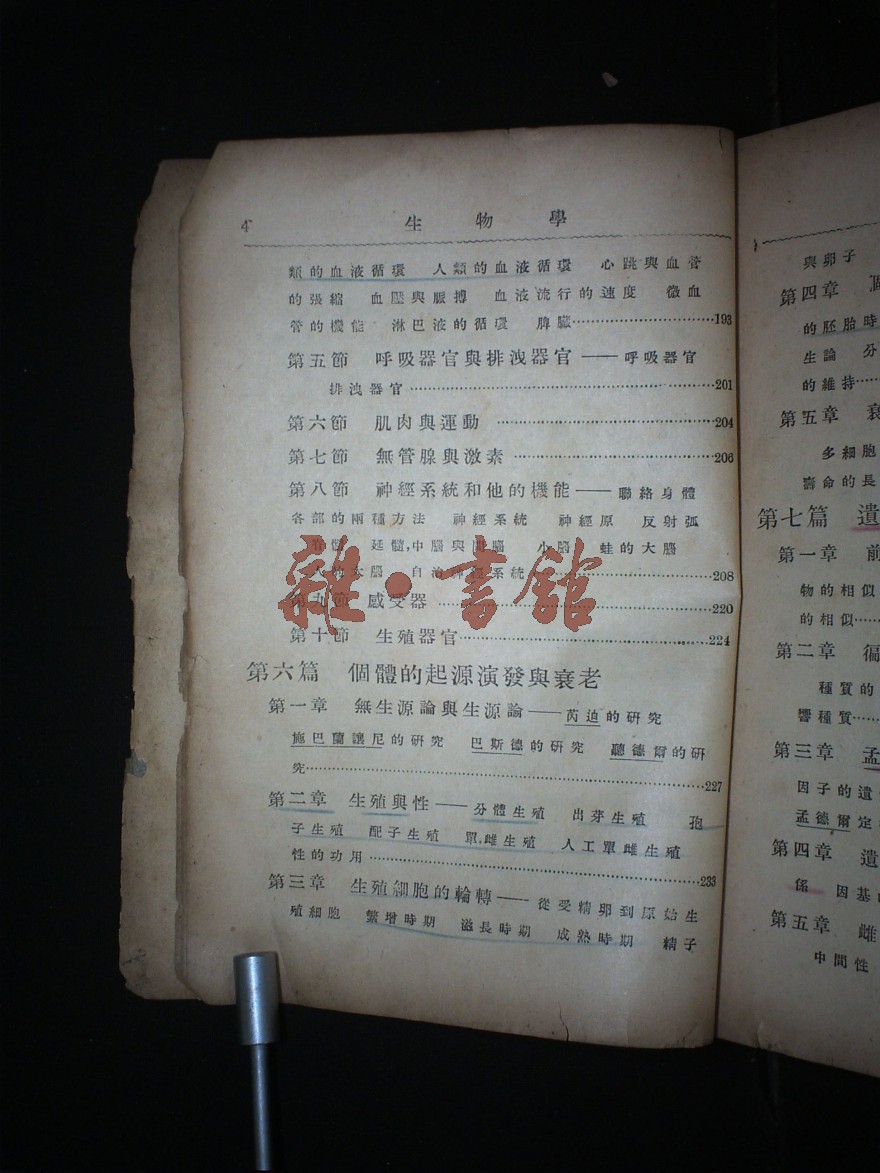 4 生物學
類的血液循環 人類的血液循環 心跳與血管
的張縮 血壓與脈搏 血液流行的速度 微血
管的機能 淋巴液的循環 脾臟……193
第五節 呼吸器官與排洩器官——呼吸器官
排洩器官……201
第六節 肌肉與運動……204
第七節 無管腺與激素……206
第八節 神經系統和他的機能——聯絡身體
各部的兩種方法 神經系統 神經原 反射弧
脊髓 延髓,中腦與間腦 小腦 蛙的大腦
大腦 自治神經系統……208
第九節 感受器……220
第十節 生殖器官……224
第六篇 個體的起源演發與衰老
第一章 無生源論與生源論——芮迫的研究
施巴蘭讓尼的研究 巴斯德的研究 聽德爾的研
究……227
第二章 生殖與性——分體生殖 出芽生殖 孢
子生殖 配子生殖 單雌生殖 人工單雌生殖
性的功用……233
第三章 生殖細胞的輪轉——從受精卵到原始生
殖細胞 繁增時期 滋長時期 成熟時期 精子
與卵子
第四章
的胚胎時
生論
的維持……
第五章 衰
多細胞
壽命的長
第七篇 遺
第一章 前
物的相似
的相似……
第二章
種質的
響種質……
第三章 孟
因子的遺
孟德爾定
第四章 遺
係 因基
第五章 雌
中間性
雜·書館